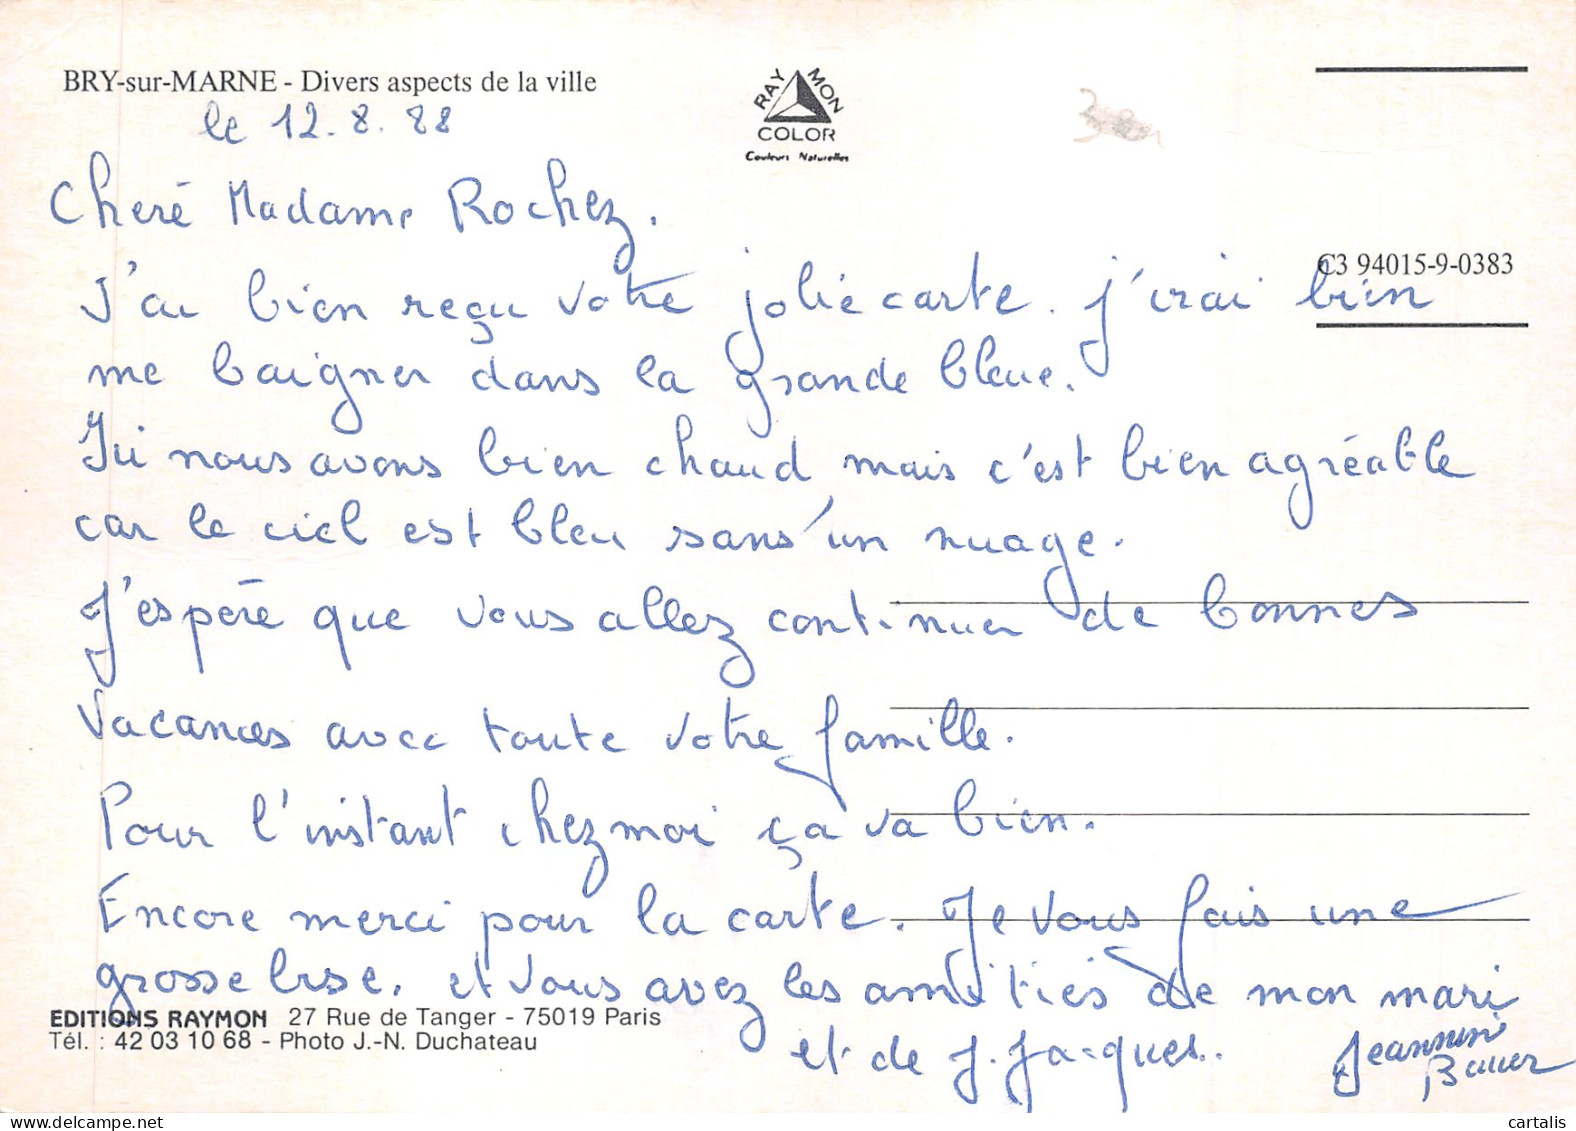 BRY-sur-MARNE - Divers aspects de la ville
RAYMON
COLOR
Couleurs Naturelles
le 12.8.88
C3 94015-9-0383
Cheré Madame Rochez.
J'ai bien reçu votre jolie carte. j'irai bien
me baigner dans la grande bleue.
Ici nous avons bien chaud mais c'est bien agréable
car le ciel est bleu sans'un nuage.
J'espère que vous allez continuer de bonnes
vacances avec toute votre famille.
Pour l'instant chez moi ça va bien.
Encore merci pour la carte. Je vous fais une
grosse bise. et vous avez les amitiés de mon mari
et de J. Jacques.
Jeannine
Bauer
EDITIONS RAYMON 27 Rue de Tanger - 75019 Paris
Tél. : 42 03 10 68 - Photo J.-N. Duchateau
cartalis